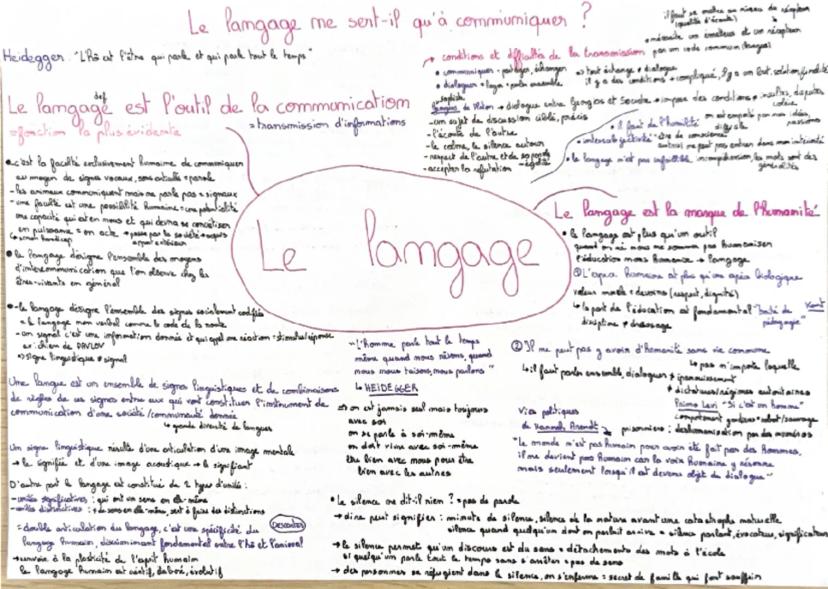 Le langage ne sert-il qu'à communiquer ?
Heidegger : "L'Hô est l'être qui parle et qui parle tout le temps"
Le langage est l'outil de la communication
def
= fonction la plus évidente
= transmission d'informations
• c'est la faculté exclusivement humaine de communiquer
au moyen de signes vocaux, = parole
- les animaux communiquent mais ne parle pas = signaux
- une faculté est une possibilité humaine = une potentialité
une capacité qui est en nous et qui devra se concrétiser
en puissance = en acte → passe par la société
• le langage désigne l'ensemble des moyens
d'intercommunication que l'on observe chez les
êtres-vivants en général
• le langage désigne l'ensemble des signes socialement codifiés
= le langage non verbal comme le code de la route
- un signal c'est une information donnée et qui appel une réaction = stimulus/réponse
ex: chien de PAVLOV
↳ signe linguistique ≠ signal
Une langue est un ensemble de signes linguistiques et de combinaisons
de règles de ces signes entre eux qui vont constituer l'instrument de
communication d'une société/communauté donnée
↳ grande diversité de langues
Un signe linguistique résulte d'une articulation d'une image mentale
↳ le signifié et d'une image acoustique → le signifiant
D'autre part le langage est constitué de 2 types d'unités :
- unités significatives : qui ont un sens en elle-même
- unités distinctives : de sens en elle-même, sert à faire des distinctions
= double articulation du langage, c'est une spécificité du
langage humain, discriminant fondamental entre l'hô et l'animal
DESCARTES
→ renvoie à la plasticité de l'esprit humain
le langage humain est créatif, élaboré, évolutif
Le langage
→ conditions et difficultés de la transmission
• communiquer = partager, échanger
• dialoguer = logos = parler ensemble
il faut se mettre au niveau du récepteur
(qualité d'écoute)
• nécessite un émetteur et un récepteur
par un code commun (langue)
→ tout échange ≠ dialogue
il y a des conditions = compliqué, il y a un but, solution, finalité
Gorgias de Platon → dialogue entre Gorgias et Socrate → impose des conditions ≠ insultes, disputes
colère,
passions
- un sujet de discussion ciblé, précis
- l'écoute de l'autre
- le calme, le silence autour
- respect de l'autre et de sa parole
- accepter la réfutation
• il faut de l'humilité
on est emporté par nos idées,
• intersubjectivité = être de conscience
autrui ne peut pas entrer dans mon intériorité
• le langage n'est pas infaillible incompréhension, les mots sont des
généralités
Le langage est la marque de l'humanité
• le langage est plus qu'un outil
quand on naît nous ne sommes pas humanisés
l'éducation nous humanise → langage
① L'espèce humaine est plus qu'une espèce biologique
valeur morale = devoirs (respect, dignité)
↳ la part de l'éducation est fondamental "traité de
pédagogie"
Kant
discipline ≠ dressage
② Il ne peut pas y avoir d'humanité sans vie commune
↳ pas n'importe laquelle
↳ il faut parler ensemble, dialoguer ≠ épanouissement
≠ dictatures/régimes autoritaires
Primo Levi "Si c'est un homme"
prisonniers : deshumanisation par des numéros
Vies politiques
de Hannah Arendt
"le monde n'est pas humain pour avoir été fait par des Hommes,
il ne devient pas humain car la voix humaine y résonne
mais seulement lorsqu'il est devenu objet du dialogue"
"L'Homme parle tout le temps
même quand nous rêvons, quand
nous nous taisons, nous parlons"
↳ HEIDEGGER
→ on est jamais seul mais toujours
avec soi
on se parle à soi-même
on doit vivre avec soi-même
être bien avec nous pour être
bien avec les autres
• Le silence ne dit-il rien ? = pas de parole
→ dire peut signifier : minute de silence, silence de la nature avant une catastrophe naturelle
silence quand quelqu'un dont on parlait arrive = silence parlant, évocateur, significateur
→ le silence permet qu'un discours est du sens = détachements des mots à l'école
si quelqu'un parle tout le temps sans s'arrêter = pas de sens
→ des personnes se réfugient dans le silence, on s'enferme = secret de famille qui font souffrir